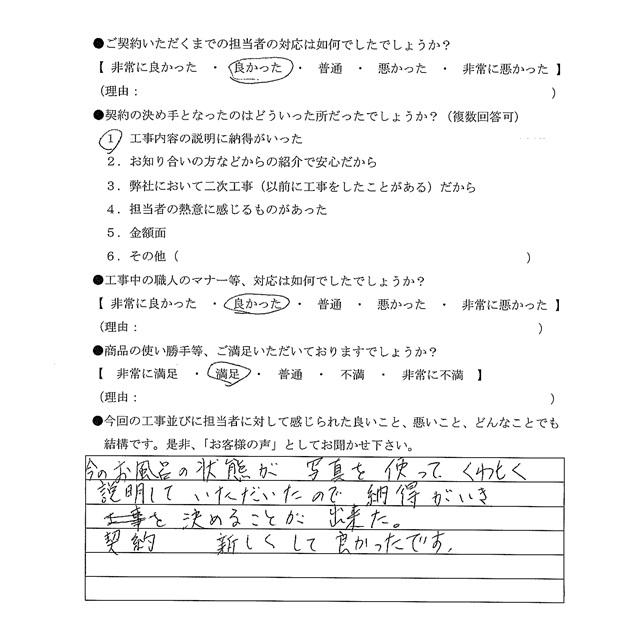 ●ご契約いただくまでの担当者の対応は如何でしたでしょうか？
【 非常に良かった ・ 良かった ・ 普通 ・ 悪かった ・ 非常に悪かった 】
（理由： ）
●契約の決め手となったのはどういった所だったでしょうか？（複数回答可）
１．工事内容の説明に納得がいった
２．お知り合いの方などからの紹介で安心だから
３．弊社において二次工事（以前に工事をしたことがある）だから
４．担当者の熱意に感じるものがあった
５．金額面
６．その他（ ）
●工事中の職人のマナー等、対応は如何でしたでしょうか？
【 非常に良かった ・ 良かった ・ 普通 ・ 悪かった ・ 非常に悪かった 】
（理由： ）
●商品の使い勝手等、ご満足いただいておりますでしょうか？
【 非常に満足 ・ 満足 ・ 普通 ・ 不満 ・ 非常に不満 】
（理由： ）
●今回の工事並びに担当者に対して感じられた良いこと、悪いこと、どんなことでも
結構です。是非、「お客様の声」としてお聞かせ下さい。
今のお風呂の状態が 写真を 使って くわしく
説明して いただいたので 納得がいき
工事を 決めることが 出来た。
契約 新しくして 良かったです。